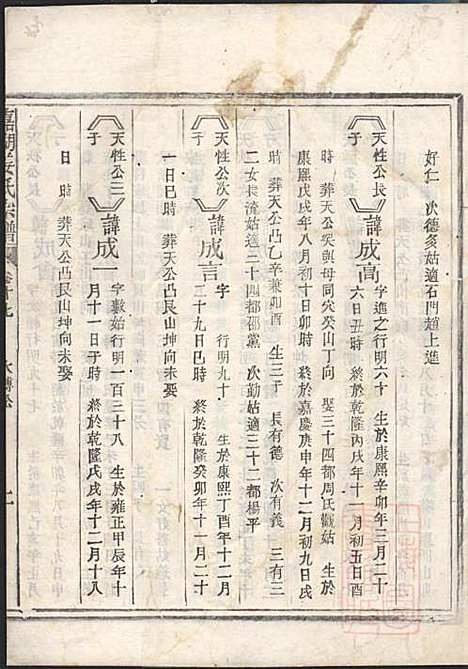 好仁 次德多姑適石門趙上進
天性公長子
諱成高
字進之行明六十 生於康熙辛卯年三月二十
六日丑時 終於乾隆丙戌年十一月初五日酉
時 葬天公癸與母同穴癸山丁向 娶三十四都周氏觀姑 生於
康熙戊戌年八月初十日卯時 終於嘉慶庚申年十二月初九日戌
時 葬天公凸乙辛兼卯酉 生三子 長有德 次有義 三有三
二女長流姑適二十四都邵黨 次勤姑適三十二都楊平
天性公次子
諱成言
字 行明九十 生於康熙丁酉年十二月
二十九日巳時 終於乾隆癸卯年十一月二十
一日巳時 葬天公凸艮山坤向未娶
天性公三子
諱成一
字數始行明一百三十八 生於雍正甲辰年十
月十一日子時 終於乾隆戊戌年十二月十八
日 時 葬天公凸艮山坤向未娶
氏宗譜